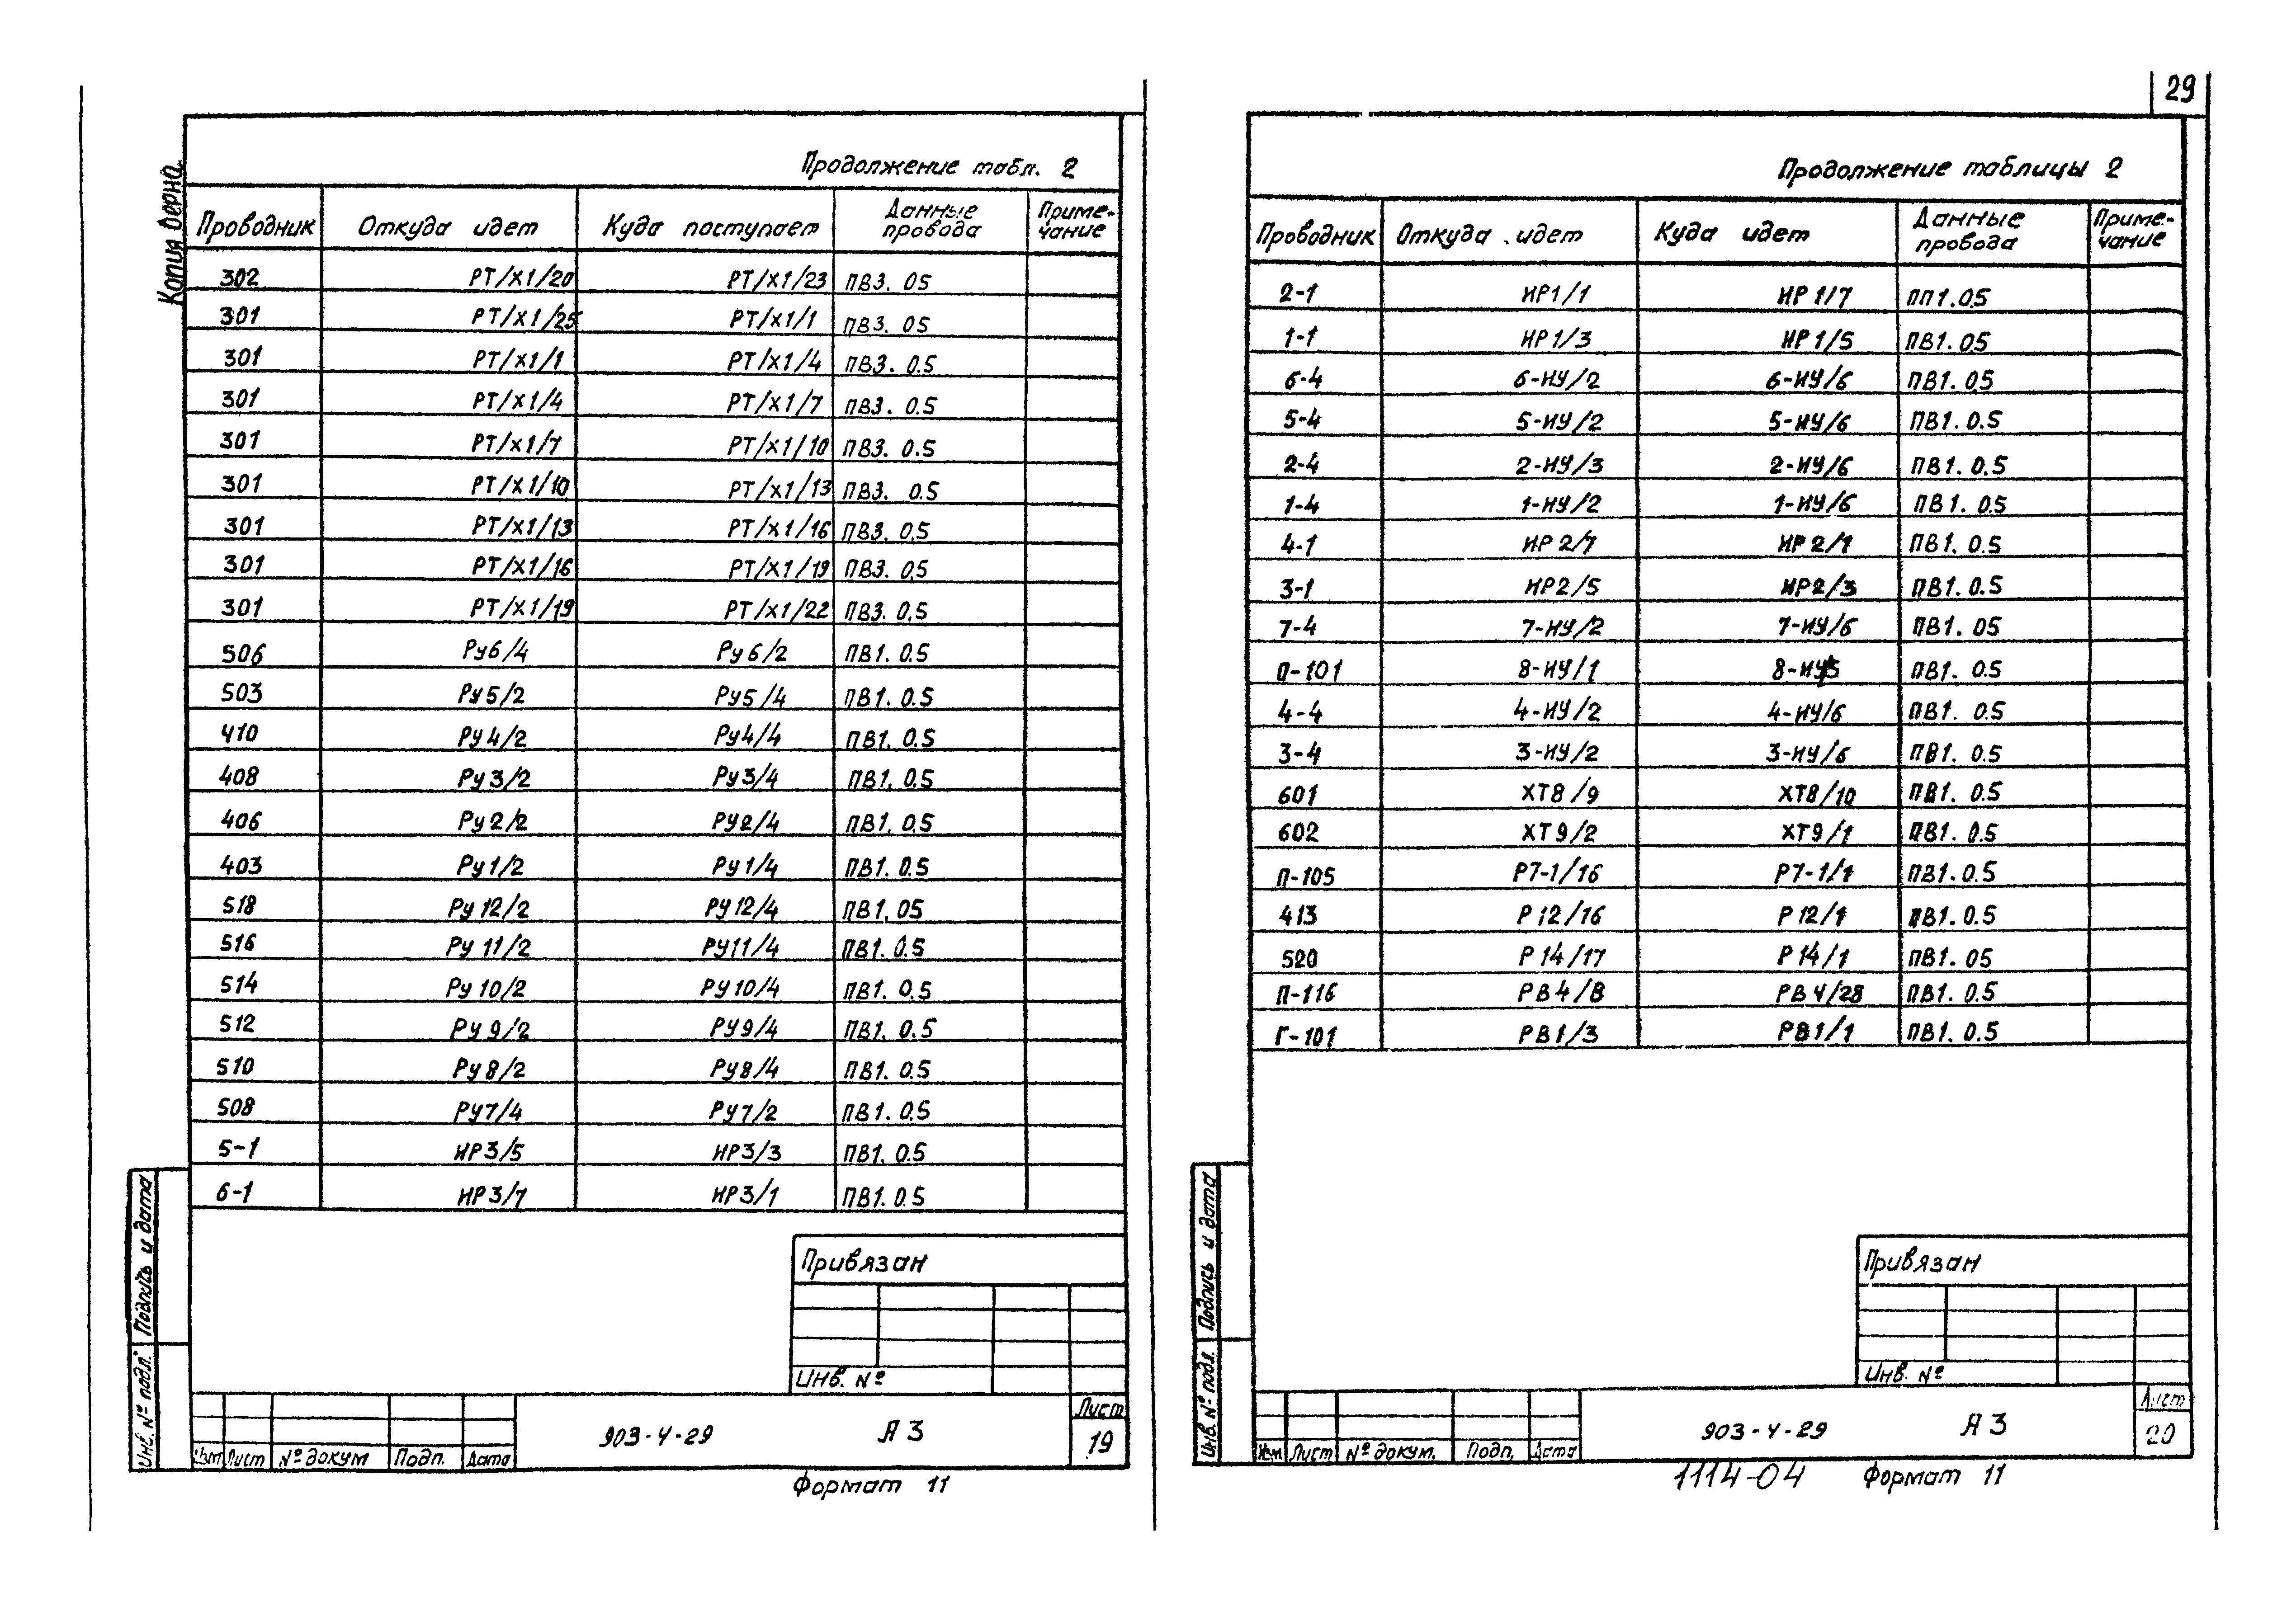 29
Копия верна
Продолжение табл. 2
Проводник Откуда идет Куда поступает Данные провода Приме-чание
302 РТ/Х1/20 РТ/Х1/23 ПВ3. 05
301 РТ/Х1/25 РТ/Х1/1 ПВ3. 05
301 РТ/Х1/1 РТ/Х1/4 ПВ3. 0.5
301 РТ/Х1/4 РТ/Х1/7 ПВ3. 0.5
301 РТ/Х1/7 РТ/Х1/10 ПВ3. 0.5
301 РТ/Х1/10 РТ/Х1/13 ПВ3. 0.5
301 РТ/Х1/13 РТ/Х1/16 ПВ3. 0,5
301 РТ/Х1/16 РТ/Х1/19 ПВ3. 0,5
301 РТ/Х1/19 РТ/Х1/22 ПВ3. 0,5
506 Ру6/4 Ру6/2 ПВ1. 0.5
503 Ру5/2 Ру5/4 ПВ1. 0.5
410 Ру4/2 Ру4/4 ПВ1. 0.5
408 Ру3/2 Ру3/4 ПВ1. 0.5
406 Ру2/2 РУ2/4 ПВ1. 0.5
403 Ру1/2 Ру1/4 ПВ1. 0.5
518 Ру12/2 РУ12/4 ПВ1. 05
516 РУ11/2 РУ11/4 ПВ1. 0.5
514 Ру10/2 РУ10/4 ПВ1. 0.5
512 РУ9/2 РУ9/4 ПВ1. 0.5
510 РУ8/2 РУ8/4 ПВ1. 0.5
508 РУ7/4 РУ7/2 ПВ1. 0.5
5-1 ИР3/5 ИР3/3 ПВ1. 0.5
6-1 ИР3/7 ИР3/1 ПВ1. 0.5
Привязан
Инв. №
Инв. № подл. Подпись и дата
Изм Лист № докум Подп. Дата
903-4-29 А3
Лист
19
Формат 11
Продолжение таблицы 2
Проводник Откуда идет Куда идет Данные провода Приме-чание
2-1 ИР1/1 ИР1/7 ПП1. 0.5
1-1 ИР1/3 ИР1/5 ПВ1. 0.5
6-4 6-ИУ/2 6-ИУ/6 ПВ1. 0.5
5-4 5-ИУ/2 5-ИУ/6 ПВ1. 0.5
2-4 2-ИУ/3 2-ИУ/6 ПВ1. 0.5
1-4 1-ИУ/2 1-ИУ/6 ПВ1. 0.5
4-1 ИР2/7 ИР2/1 ПВ1. 0.5
3-1 ИР2/5 ИР2/3 ПВ1. 0.5
7-4 7-ИУ/2 7-ИУ/6 ПВ1. 05
П-101 8-ИУ/1 ПВ1. 0.5
4-4 4-ИУ/2 4-ИУ/6 ПВ1. 0.5
3-4 3-ИУ/2 3-ИУ/6 ПВ1. 0.5
601 ХТ8/9 ХТ8/10 ПВ1. 0.5
602 ХТ9/2 ХТ9/1 ПВ1. 0.5
П-105 Р7-1/16 Р7-1/1 ПВ1. 0.5
413 Р12/16 Р12/1 ПВ1. 0.5
520 Р14/17 Р14/1 ПВ1. 05
П-116 РВ4/8 РВ4/28 ПВ1. 0.5
Г-101 РВ1/3 РВ1/1 ПВ1. 0.5
Привязан
Инв. №
Инв. № подл. Подпись и дата
Изм Лист № докум. Подп. Дата
903-4-29 А3
Лист
20
1114-04 Формат 11